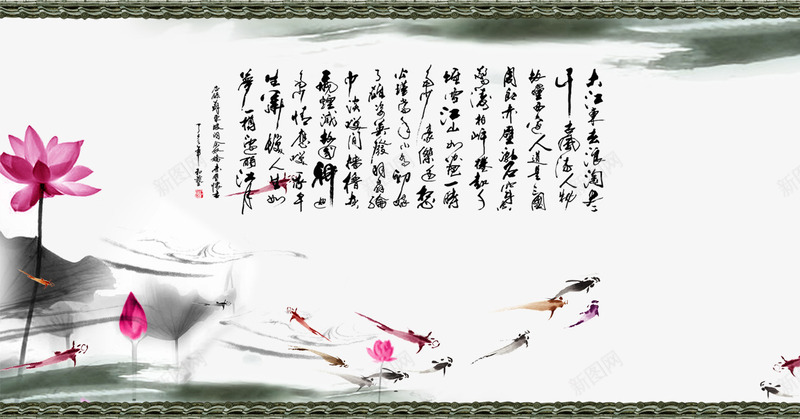 大江東去浪淘盡
千古風流人物
故壘西邊人道是三國
周郎赤壁亂石穿空
驚濤拍岸捲起千
堆雪江山如畫一時
多少豪傑遙想
公瑾當年小喬初嫁
了雄姿英發羽扇綸
巾談笑間檣櫓灰
飛煙滅故國神遊
多情應笑我早
生華髮人生如
夢一樽還酹江月